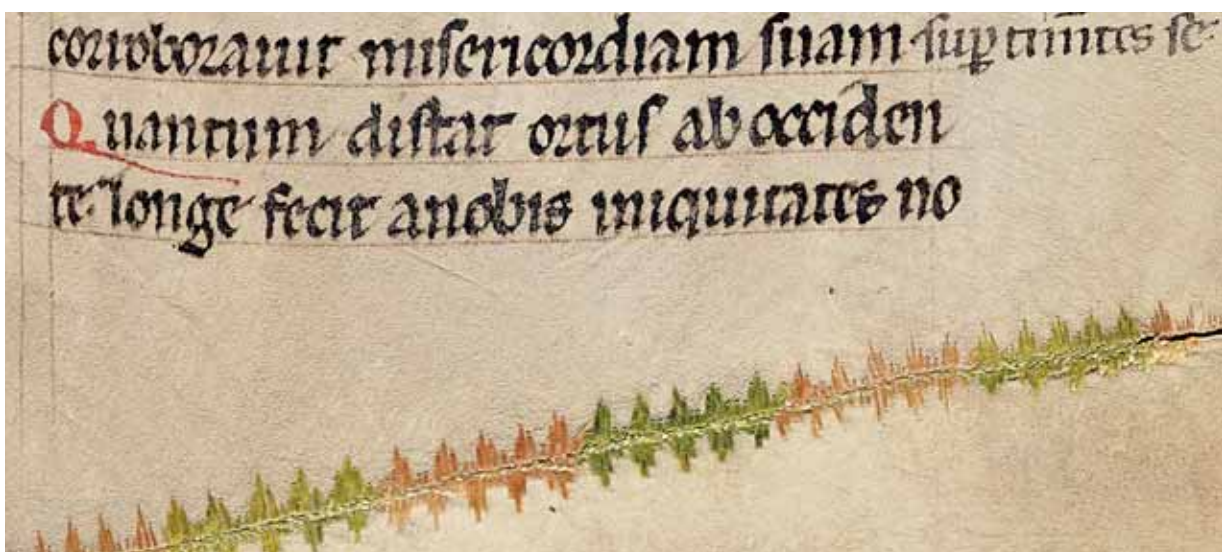 corroborauit misericordiam suam sup timẽtes se·
Quantum distat ortus ab occiden
te· longe fecit a nobis iniquitates no